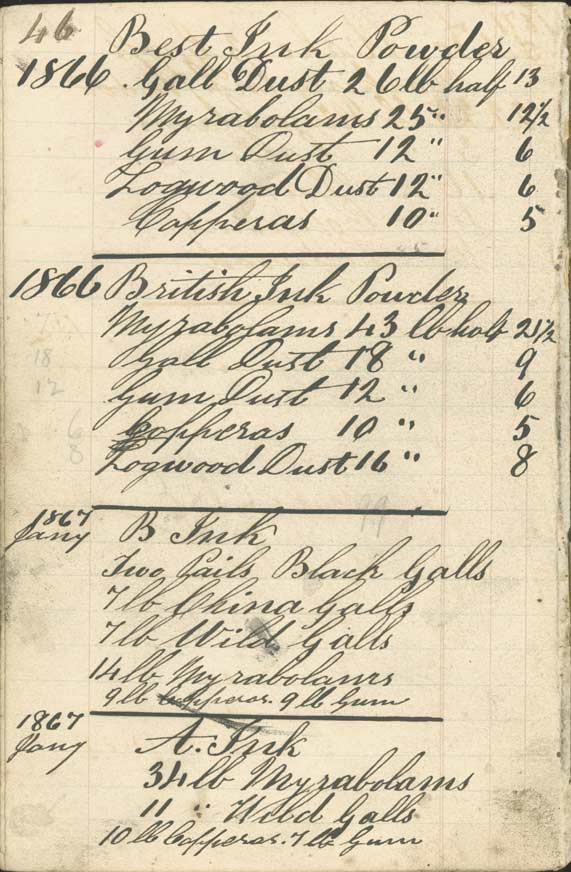 46
Best Ink Powder
1866 Gall Dust 26 lb half 13
Myrabolams 25 " 12½
Gum Dust 12 " 6
Logwood Dust 12 " 6
Copperas 10 " 5
1866 British Ink Powder
Myrabolams 43 lb half 21½
Gall Dust 18 " 9
Gum Dust 12 " 6
Copperas 10 " 5
Logwood Dust 16 " 8
18
12
6
8
99
1867
Jany B Ink
Two Pails Black Galls
7 lb China Galls
7 lb Wild Galls
14 lb Myrabolams
9 lb Copperas. 9 lb Gum
1867
Jany A. Ink
34 lb Myrabolams
11 " Wild Galls
10 lb Copperas. 7 lb Gum